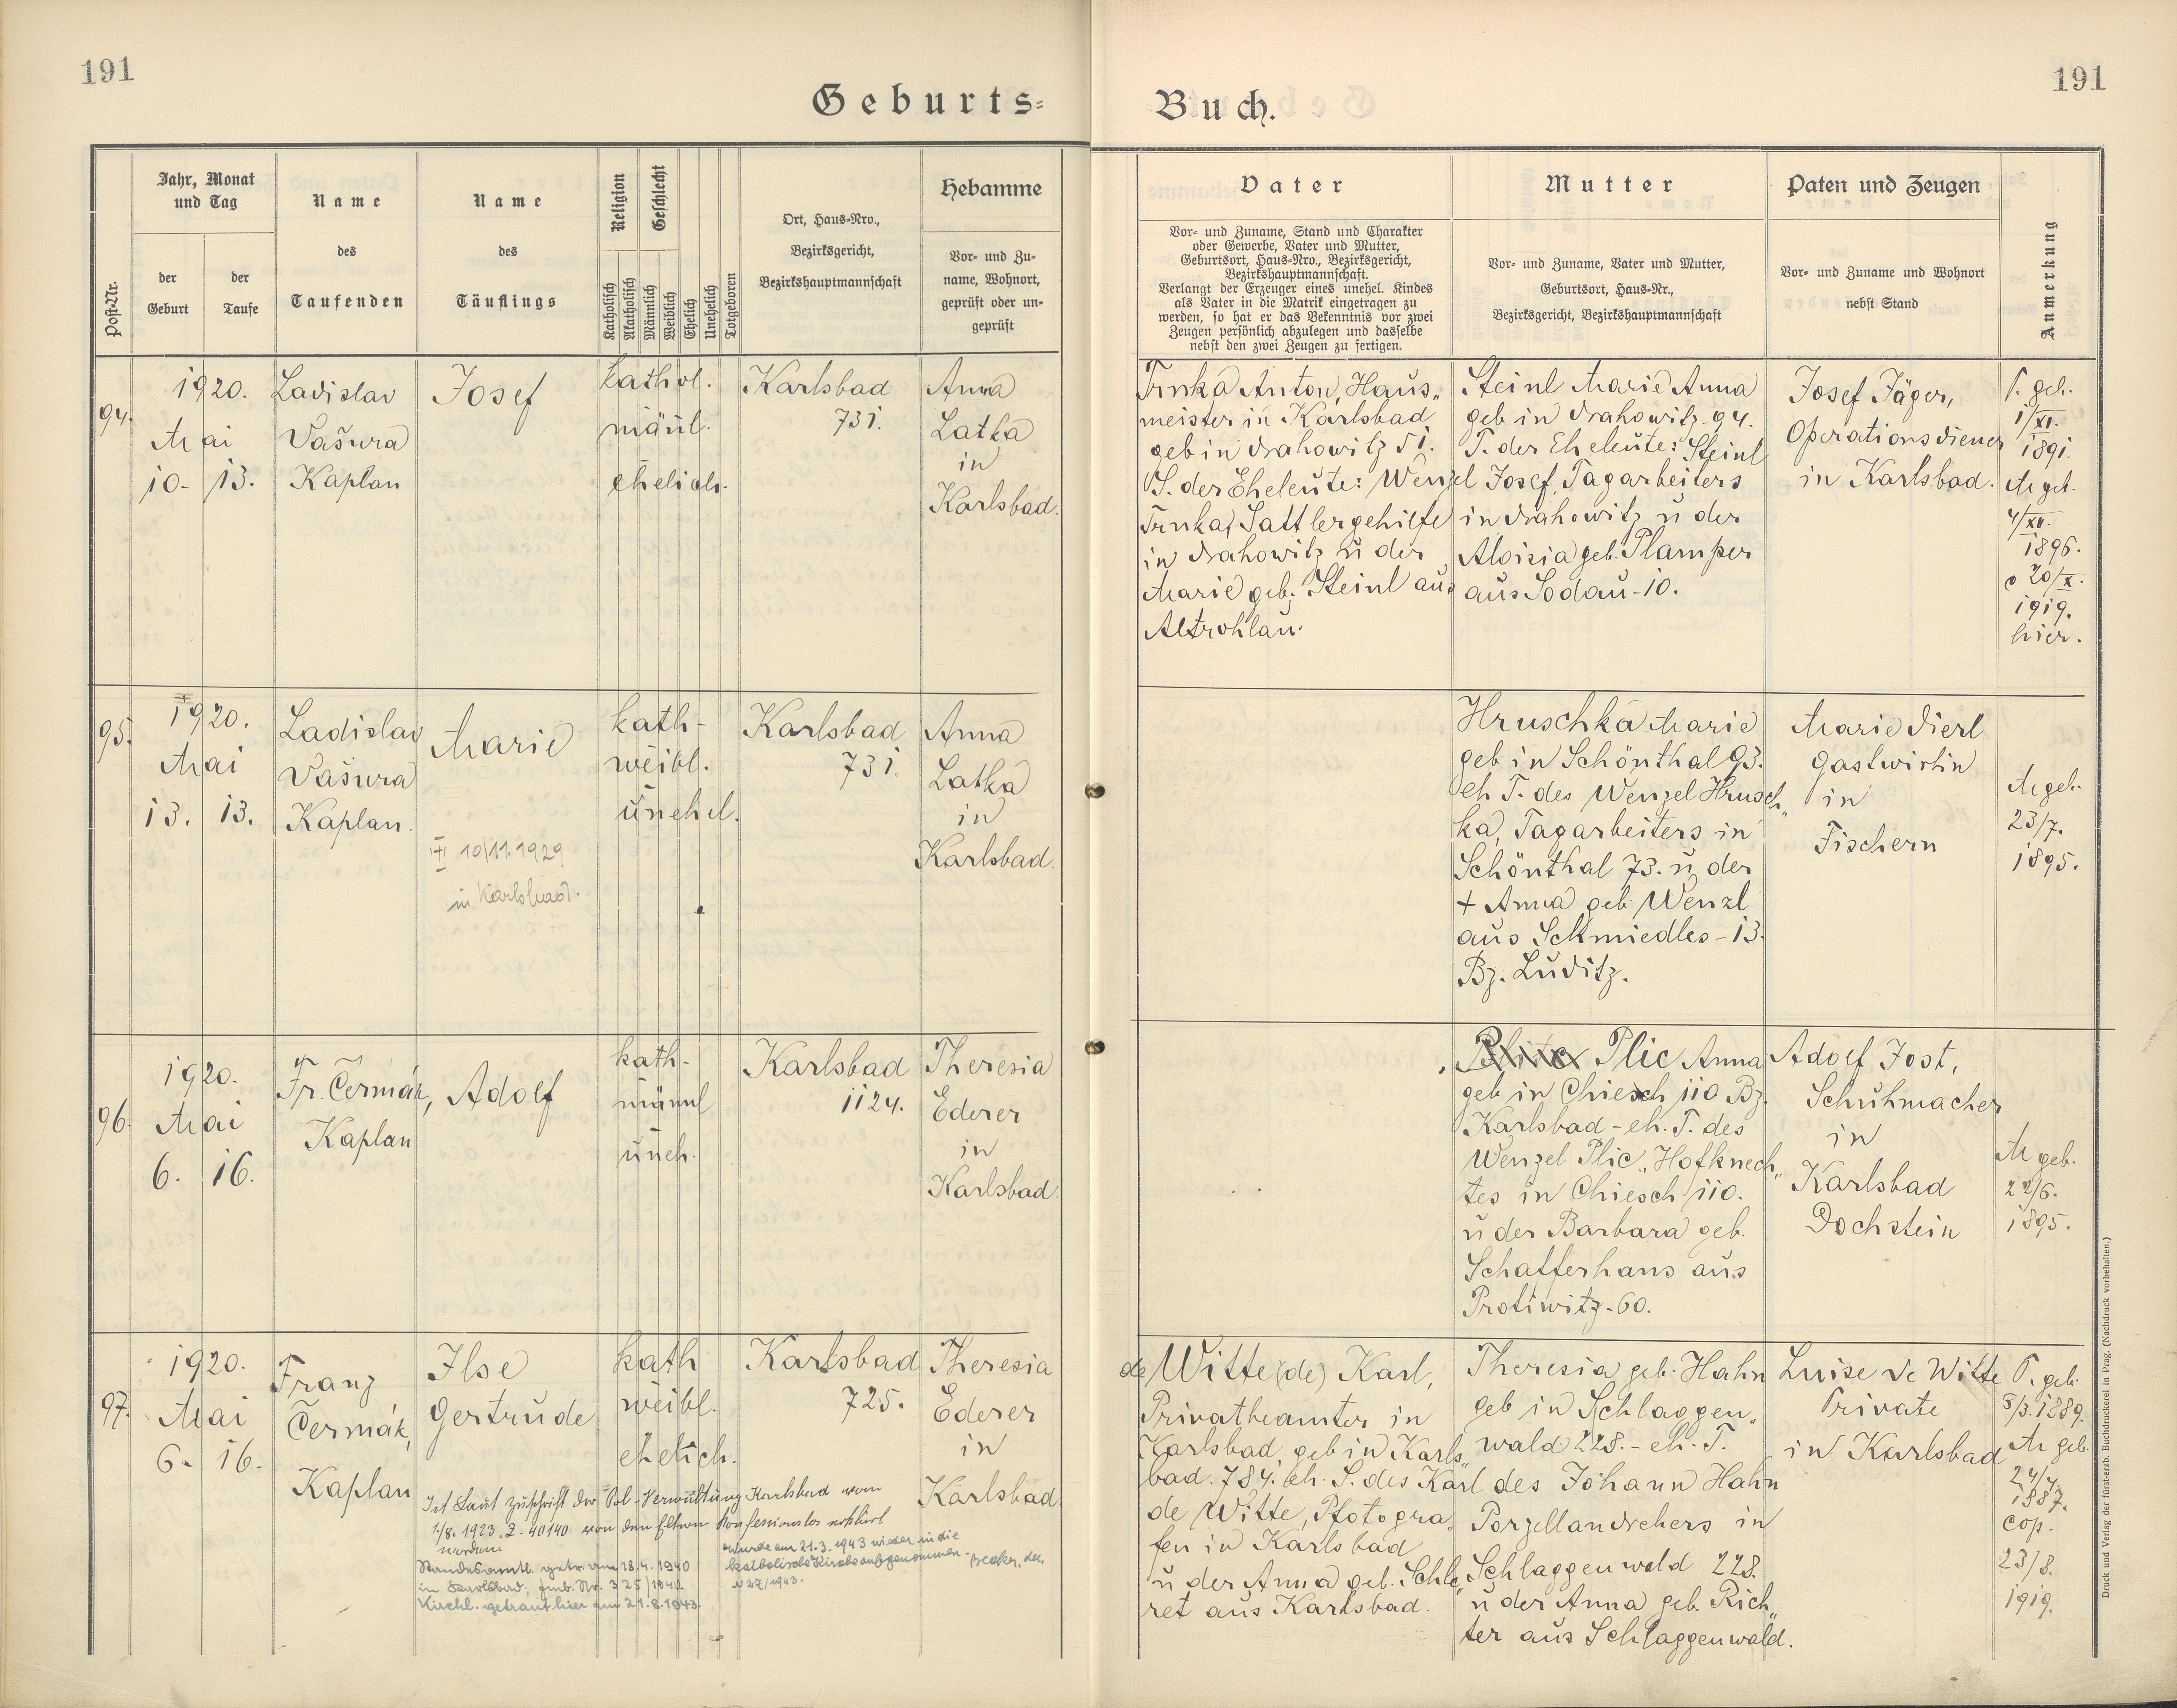 191
Geburts=
Buch.
191
Post-Nr.
Jahr, Monat
und Tag
der
Geburt
der
Taufe
Name
des
Taufenden
Name
des
Täuflings
Religion
Geschlecht
Katholisch
Akatholisch
Männlich
Weiblich
Ehelich
Unehelich
Totgeboren
Ort, Haus-Nro.,
Bezirksgericht,
Bezirkshauptmannschaft
Hebamme
Vor- und Zu-
name, Wohnort,
geprüft oder un-
geprüft
Vater
Vor- und Zuname, Stand und Charakter
oder Gewerbe, Vater und Mutter,
Geburtsort, Haus-Nro., Bezirksgericht,
Bezirkshauptmannschaft.
Verlangt der Erzeuger eines unehel. Kindes
als Vater in die Matrik eingetragen zu
werden, so hat er das Bekenntnis vor zwei
Zeugen persönlich abzulegen und dasselbe
nebst den zwei Zeugen zu fertigen.
Mutter
Vor- und Zuname, Vater und Mutter,
Geburtsort, Haus-Nr.,
Bezirksgericht, Bezirkshauptmannschaft
Paten und Zeugen
Vor- und Zuname und Wohnort
nebst Stand
Anmerkung
94.
1920.
Mai
10. 13.
Ladislav
Vašura
Kaplan
Josef
kathol.
mänl.
ehelich.
Karlsbad
731.
Anna
Latka
in
Karlsbad.
Trnka Anton, Haus„
meister in Karlsbad
geb in Drahowitz 51.
S. der Eheleute: Wenzel
Trnka, Sattlergehilfe
in Drahowitz u der
Marie geb. Steinl aus
Altrohlau.
Steinl Marie Anna
geb in Drahowitz 94.
T. der Eheleute: Steinl
Josef, Tagarbeiters
in Drahowitz u der
Aloisia geb. Plamper
aus Sodau-10.
Josef Jäger,
Operationsdiener
in Karlsbad.
V. geb.
1/XI.
1891.
M geb.
4/XII.
1896.
c 20/X.
1919.
hier.
95.
1920.
Mai
13. 13.
Ladislav
Vašura
Kaplan.
Marie
10/11.1929
in Karlsbad.
kath-
weibl.
unehel.
Karlsbad
731.
Anna
Latka
in
Karlsbad.
Hruschka Marie
geb in Schönthal 93.
eh T. des Wenzel Hrusch„
ka, Tagarbeiters in
Schönthal 73. u der
+ Anna geb Wenzl
aus Schmiedles-13.
Bz. Luditz.
Marie Dierl
Gastwirtin
in
Fischern
M geb.
23/7.
1895.
96.
1920.
Mai
6. 16.
Fr. Čermák,
Kaplan
Adolf
kath-
männl
uneh.
Karlsbad
1124.
Theresia
Ederer
in
Karlsbad.
Plic Anna
geb in Chiesch 110 Bz.
Karlsbad - eh. T. des
Wenzel Plic, Hofknech„
tes in Chiesch 110.
u der Barbara geb.
Schafferhans aus
Protiwitz-60.
Adolf Jost,
Schuhmacher
in
Karlsbad
Dochstein
M geb.
22/6.
1895.
97.
1920.
Mai
6. 16.
Franz
Čermák,
Kaplan
Ilse
Gertrude
kath
weibl.
ehelich.
Karlsbad
725.
Theresia
Ederer
in
Karlsbad
Ist Laut Zuschrift der Pol-Verwaltung Karlsbad vom
1/8. 1923. Z. 40140 von den Eltern konfessionslos erklärt
worden.
Standesamtl. getr. am 18.4.1940
in Karlsbad; Fmb. Nr. 325/1940.
Kirchl. getraut hier am 21.8.1943.
wurde am 21.3.1943 wieder in die
katholische Kirche aufgenommen -
N 27/1943.
de Witte (de) Karl,
Privatbeamter in
Karlsbad, geb in Karls„
bad. 784. eh. S. des Karl
de Witte, Photogra„
fen in Karlsbad
u der Anna geb. Schle„
ret aus Karlsbad.
Theresia geb. Hahn
geb in Schlaggen„
wald 228. - eh. T.
des Johann Hahn
Porzellandrehers in
Schlaggenwald 228.
u der Anna geb. Rich„
ter aus Schlaggenwald.
Luise de Witte
Private
in Karlsbad
V. geb.
5/3. 1889.
M geb.
24/4.
1887.
cop.
23/8.
1919.
Druck und Verlag der fürst-erzb. Buchdruckerei in Prag. (Nachdruck vorbehalten.)